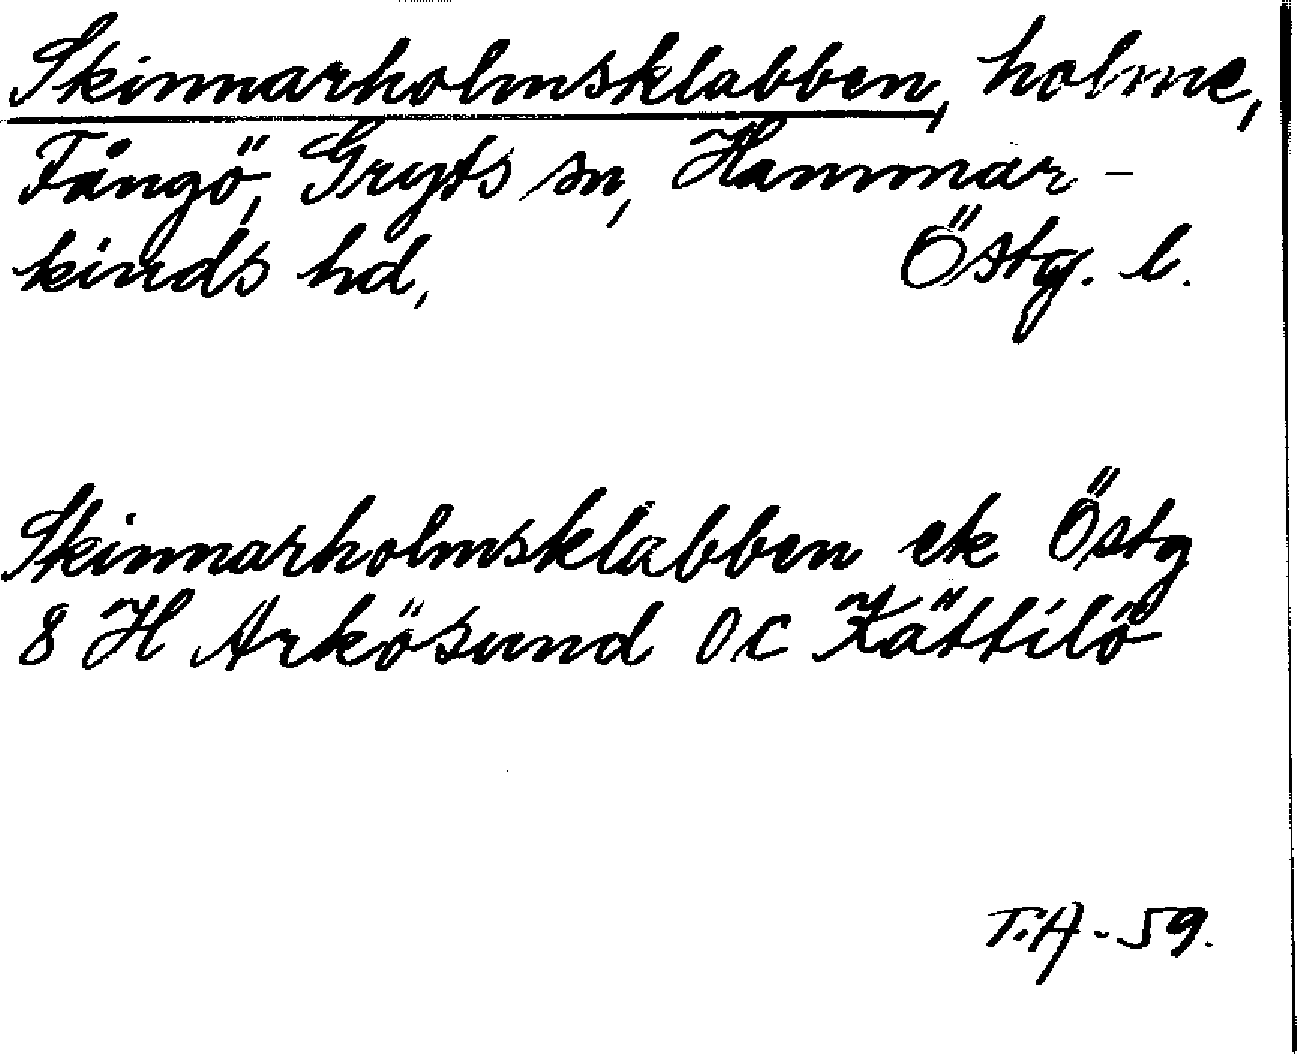 Skinnarholmsklabben, holme,
Fångö, Gryts sn, Hammar-
kinds hd, Östg. l.
Skinnarholmsklabben ek Östg
8 H Arkösund 0 c Kättilö
T.A - 59.